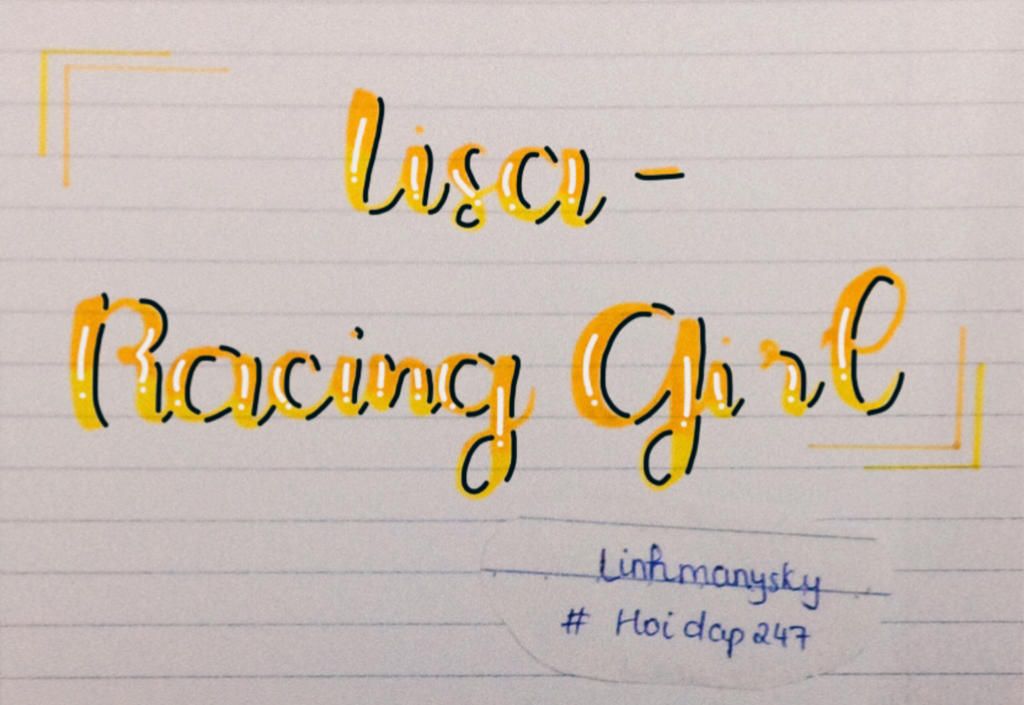 Lisa -
Racing Girl
Linhmanysky
# Hoidap247